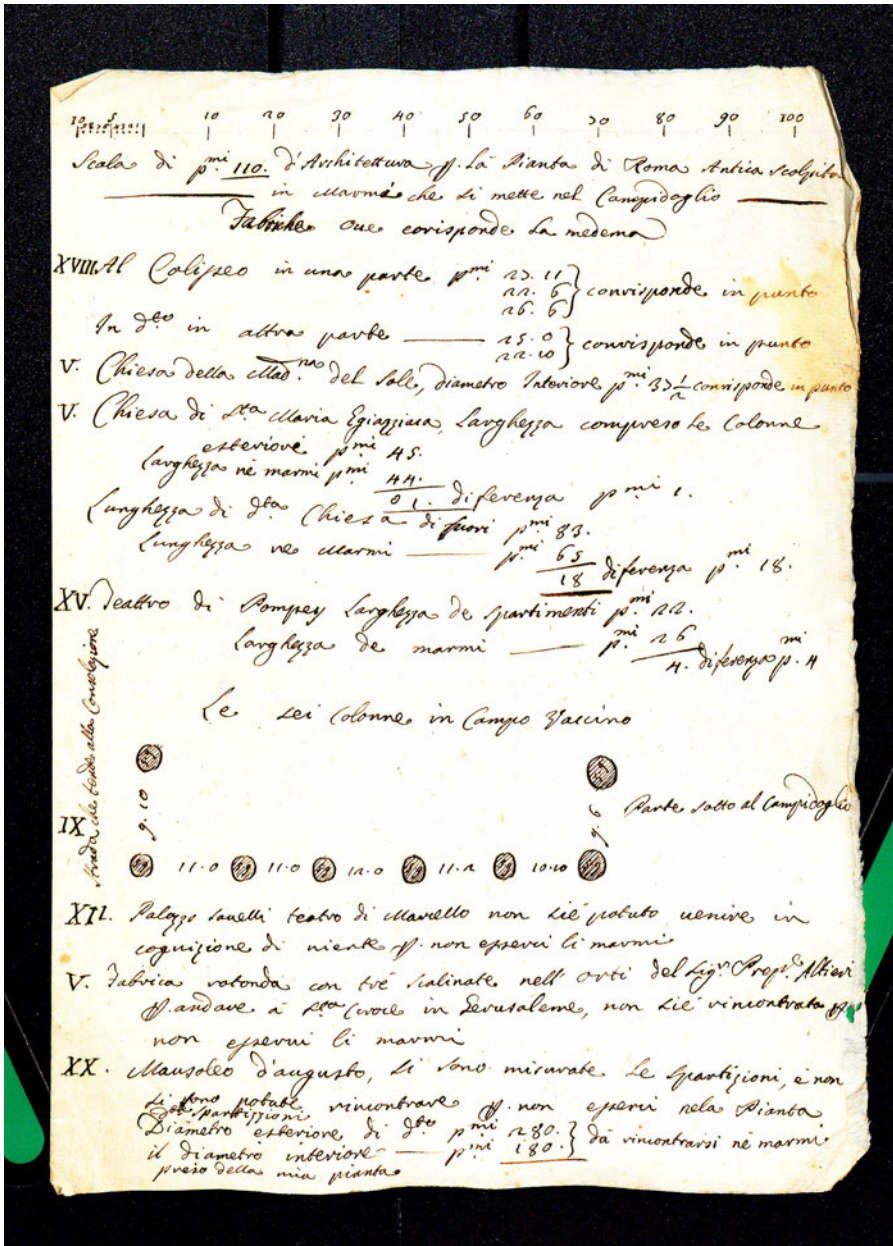 10 5 10 20 30 40 50 60 70 80 90 100
Scala di p.mi 110. d'Architettura p. La Pianta di Roma Antica scolpita
in Marmi che si mette nel Campidoglio
Fabriche oue corisponde La medema
XVIII Al Coliseo in una parte p.mi 27. 11
22. 6
26. 6 } conrisponde in punto
In d.to in altra parte 25. 0
22. 10 } conrisponde in punto
V. Chiesa della Mad.na del Sole, diametro Interiore p.mi 37 1/2 conrisponde in punto
V. Chiesa di S.ta Maria Egizziaca, Larghezza compreso Le Colonne
esteriori p.mi 45.
Larghezza né marmi p.mi 44.
01. diferenza p.mi 1.
Lunghezza di d.ta Chiesa di fuori p.mi 83.
Lunghezza ne Marmi p.mi 65
18 diferenza p.mi 18.
XV. Teattro di Pompey Larghezza de spartimenti p.mi 22.
Larghezza de marmi p.mi 26
4. diferenza p.mi 4
Le sei Colonne in Campo Vaccino
Strada che tende alla Consolazione
IX 9. 10 9. 6 Parte sotto al Campidoglio
11. 0 11. 0 12. 0 11. 2 10. 10
XII. Palazzo Sauelli teatro di Marcello non si é potuto uenire in
cognizione di niente p. non esserui li marmi
V. Fabrica rotonda con tré scalinate nell' orti del Sig.r Altieri
p. andare à S.ta Croce in Gerusaleme, non si é rincontrata p.
non esserui li marmi
XX. Mausoleo d'augusto, si sono misurate Le Spartizioni, e non
si sono potute rincontrare p. non esserci nela Pianta
D.te spartizzioni
Diametro esteriore di d.to p.mi 280.
il diametro interiore p.mi 180. } dà rincontrarsi né marmi
preso della mia pianta